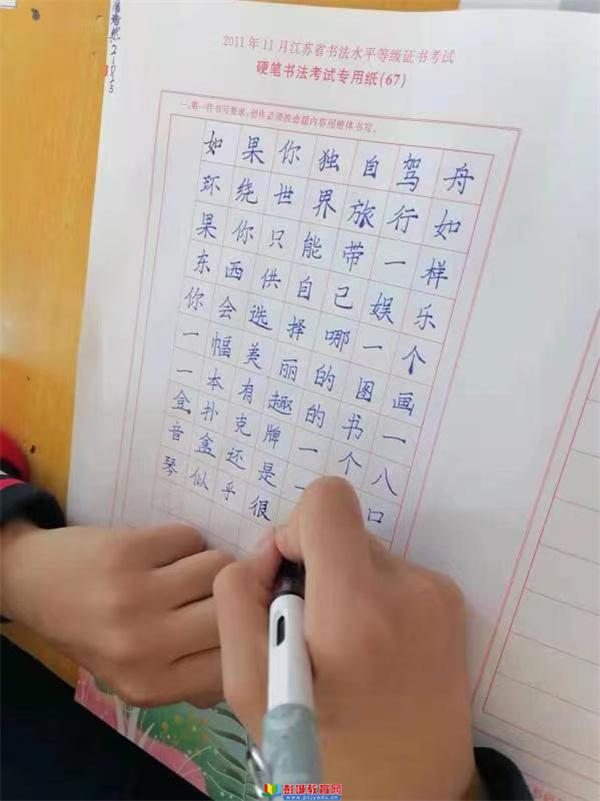 2011年11月江苏省书法水平等级证书考试
硬笔书法考试专用纸(67)
书写要求:创作必须按命题内容用楷体书写。
如果你独自驾舟
环绕世界旅行如
果你只能带一样
东西供自己娱乐
你会选择哪一个
一幅美丽的图画
一本有趣的书一
盒扑克牌一个八
音盒还是一口
琴似乎很
彭城教育网